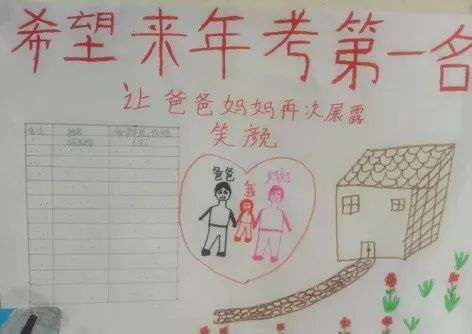 希望来年考第一名
让爸爸妈妈再次展露
笑颜
爸爸
我
妈妈